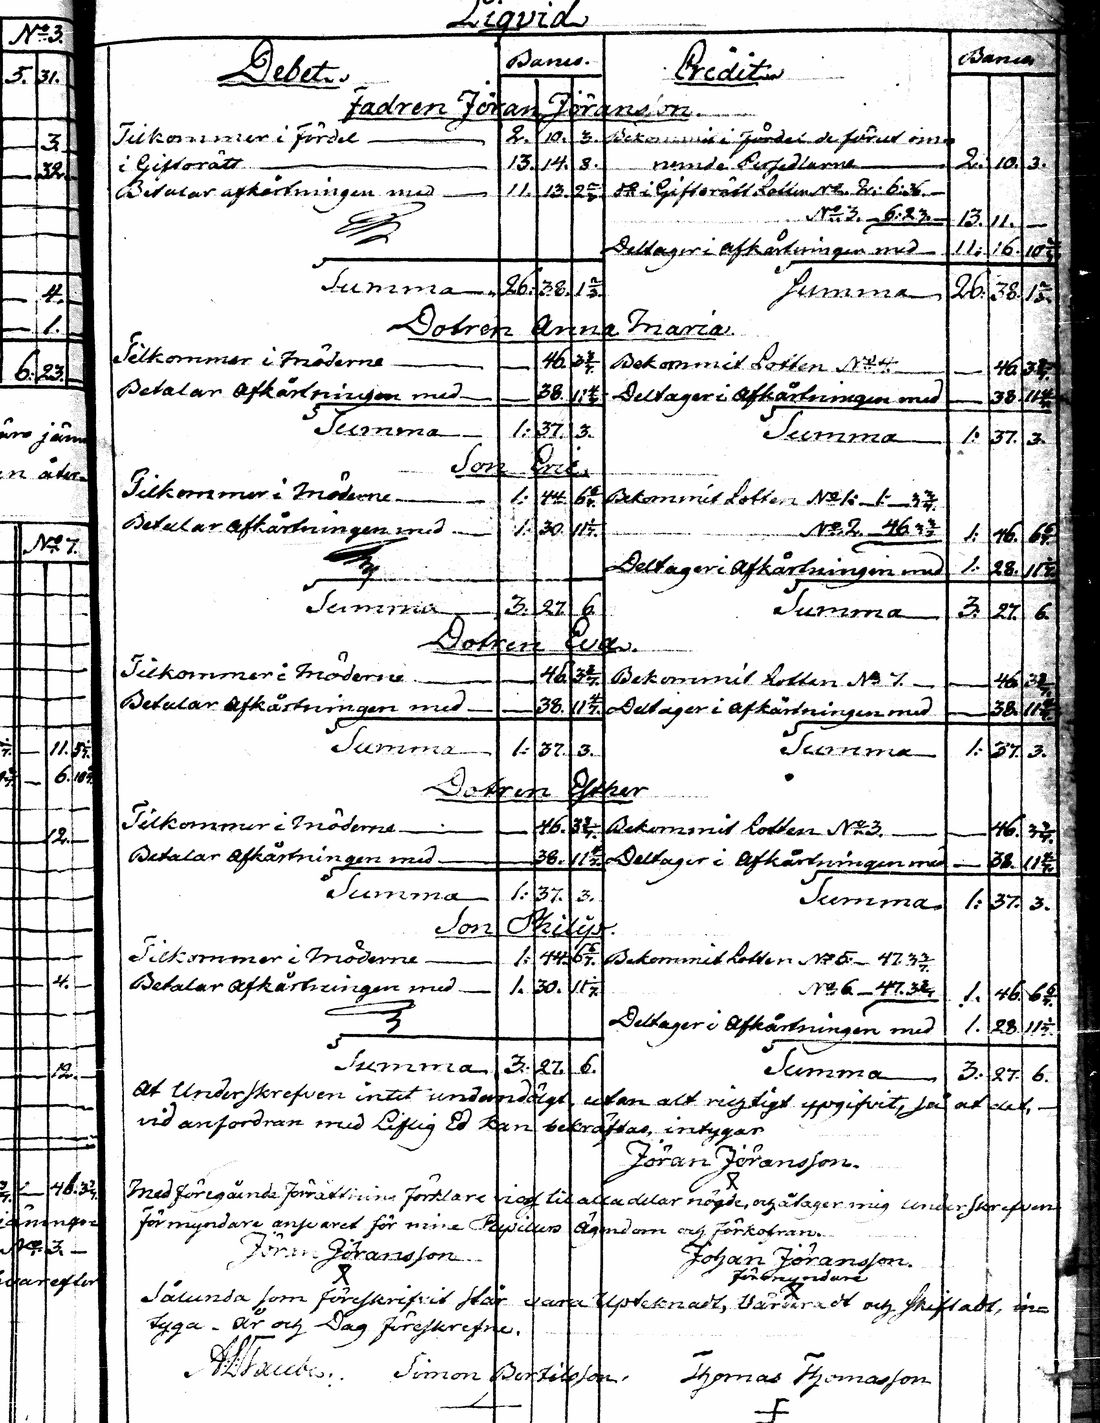 Liqvid
Debet. Banco. Credit. Banco
Fadren Jöran Jöransson.
Tilkommer i Fördel — 2. 10. 3. Bekommit i Fördel de förut om=
nemde Persedlarne — 2. 10. 3.
i Giftorätt — 13. 14. 8.
Betalar afkårtningen med — 11. 13. 2 i Giftorätt Lotten No 2: 6:36.
No 3. 6:23. — 13. 11. —
Deltager i Afkårtningen med — 11: 16. 10
Summa — 26. 38. 1 Summa — 26. 38. 1
Dotren Anna Maria
Tilkommer i Möderne — 46. 3 2/7. Bekommit Lotten No 4. — 46. 3 2/7.
Betalar Afkårtningen med — 38. 11 4/7. Deltager i Afkårtningen med — 38. 11 4/7.
Summa — 1: 37. 3. Summa — 1: 37. 3.
Son Eric.
Tilkommer i Möderne — 1: 44. 6 Bekommit Lotten No 1:
Betalar Afkårtningen med — 1. 30. 11 No 2. 46. 3 1: 46. 6
Deltager i Afkårtningen med 1: 28. 11
Summa — 3. 27. 6. Summa — 3. 27. 6.
Dotren Eva.
Tilkommer i Möderne — 46. 3 2/7. Bekommit Lotten No 7. — 46. 3 2/7.
Betalar Afkårtningen med — 38. 11 4/7. Deltager i Afkårtningen med — 38. 11 4/7.
Summa — 1: 37. 3. Summa — 1: 37. 3.
Dotren Esther
Tilkommer i Möderne — 46. 3 2/7. Bekommit Lotten No 3. — 46. 3 2/7.
Betalar Afkårtningen med — 38. 11 4/7. Deltager i Afkårtningen med — 38. 11 4/7.
Summa — 1: 37. 3. Summa — 1: 37. 3.
Son Philip.
Tilkommer i Möderne — 1: 44. 6 Bekommit Lotten No 5. — 47. 3
Betalar Afkårtningen med — 1. 30. 11 No 6 — 47. 3 1. 46. 6
Deltager i Afkårtningen med 1. 28. 11
Summa 3. 27. 6. Summa — 3: 27. 6.
At Underskrefven intet undandölgt, utan alt riktigt upgifvit, så at det, —
vid anfordran med Liflig Ed kan bekräftas, intygar
Jöran Jöransson.
Med föregående Förrättning förklare vi oss til alla delar nögde, och åtager mig underskrefven
förmyndare ansvaret för mine Pupillers Ägendom och Förkofran.
Jöran Jöransson Johan Jöransson.
förmyndare
Sålunda som föreskrifvit står vara Upteknadt, Värderadt och Skiftadt, in=
tyga — År och Dag föreskrefne.
Simon Bertilsson. Thomas Thomasson
No 3.
5. 31.
3.
32.
4.
1.
6. 23.
No 7.
11. 5
6. 10
12.
4.
12.
46. 3
No 3. —